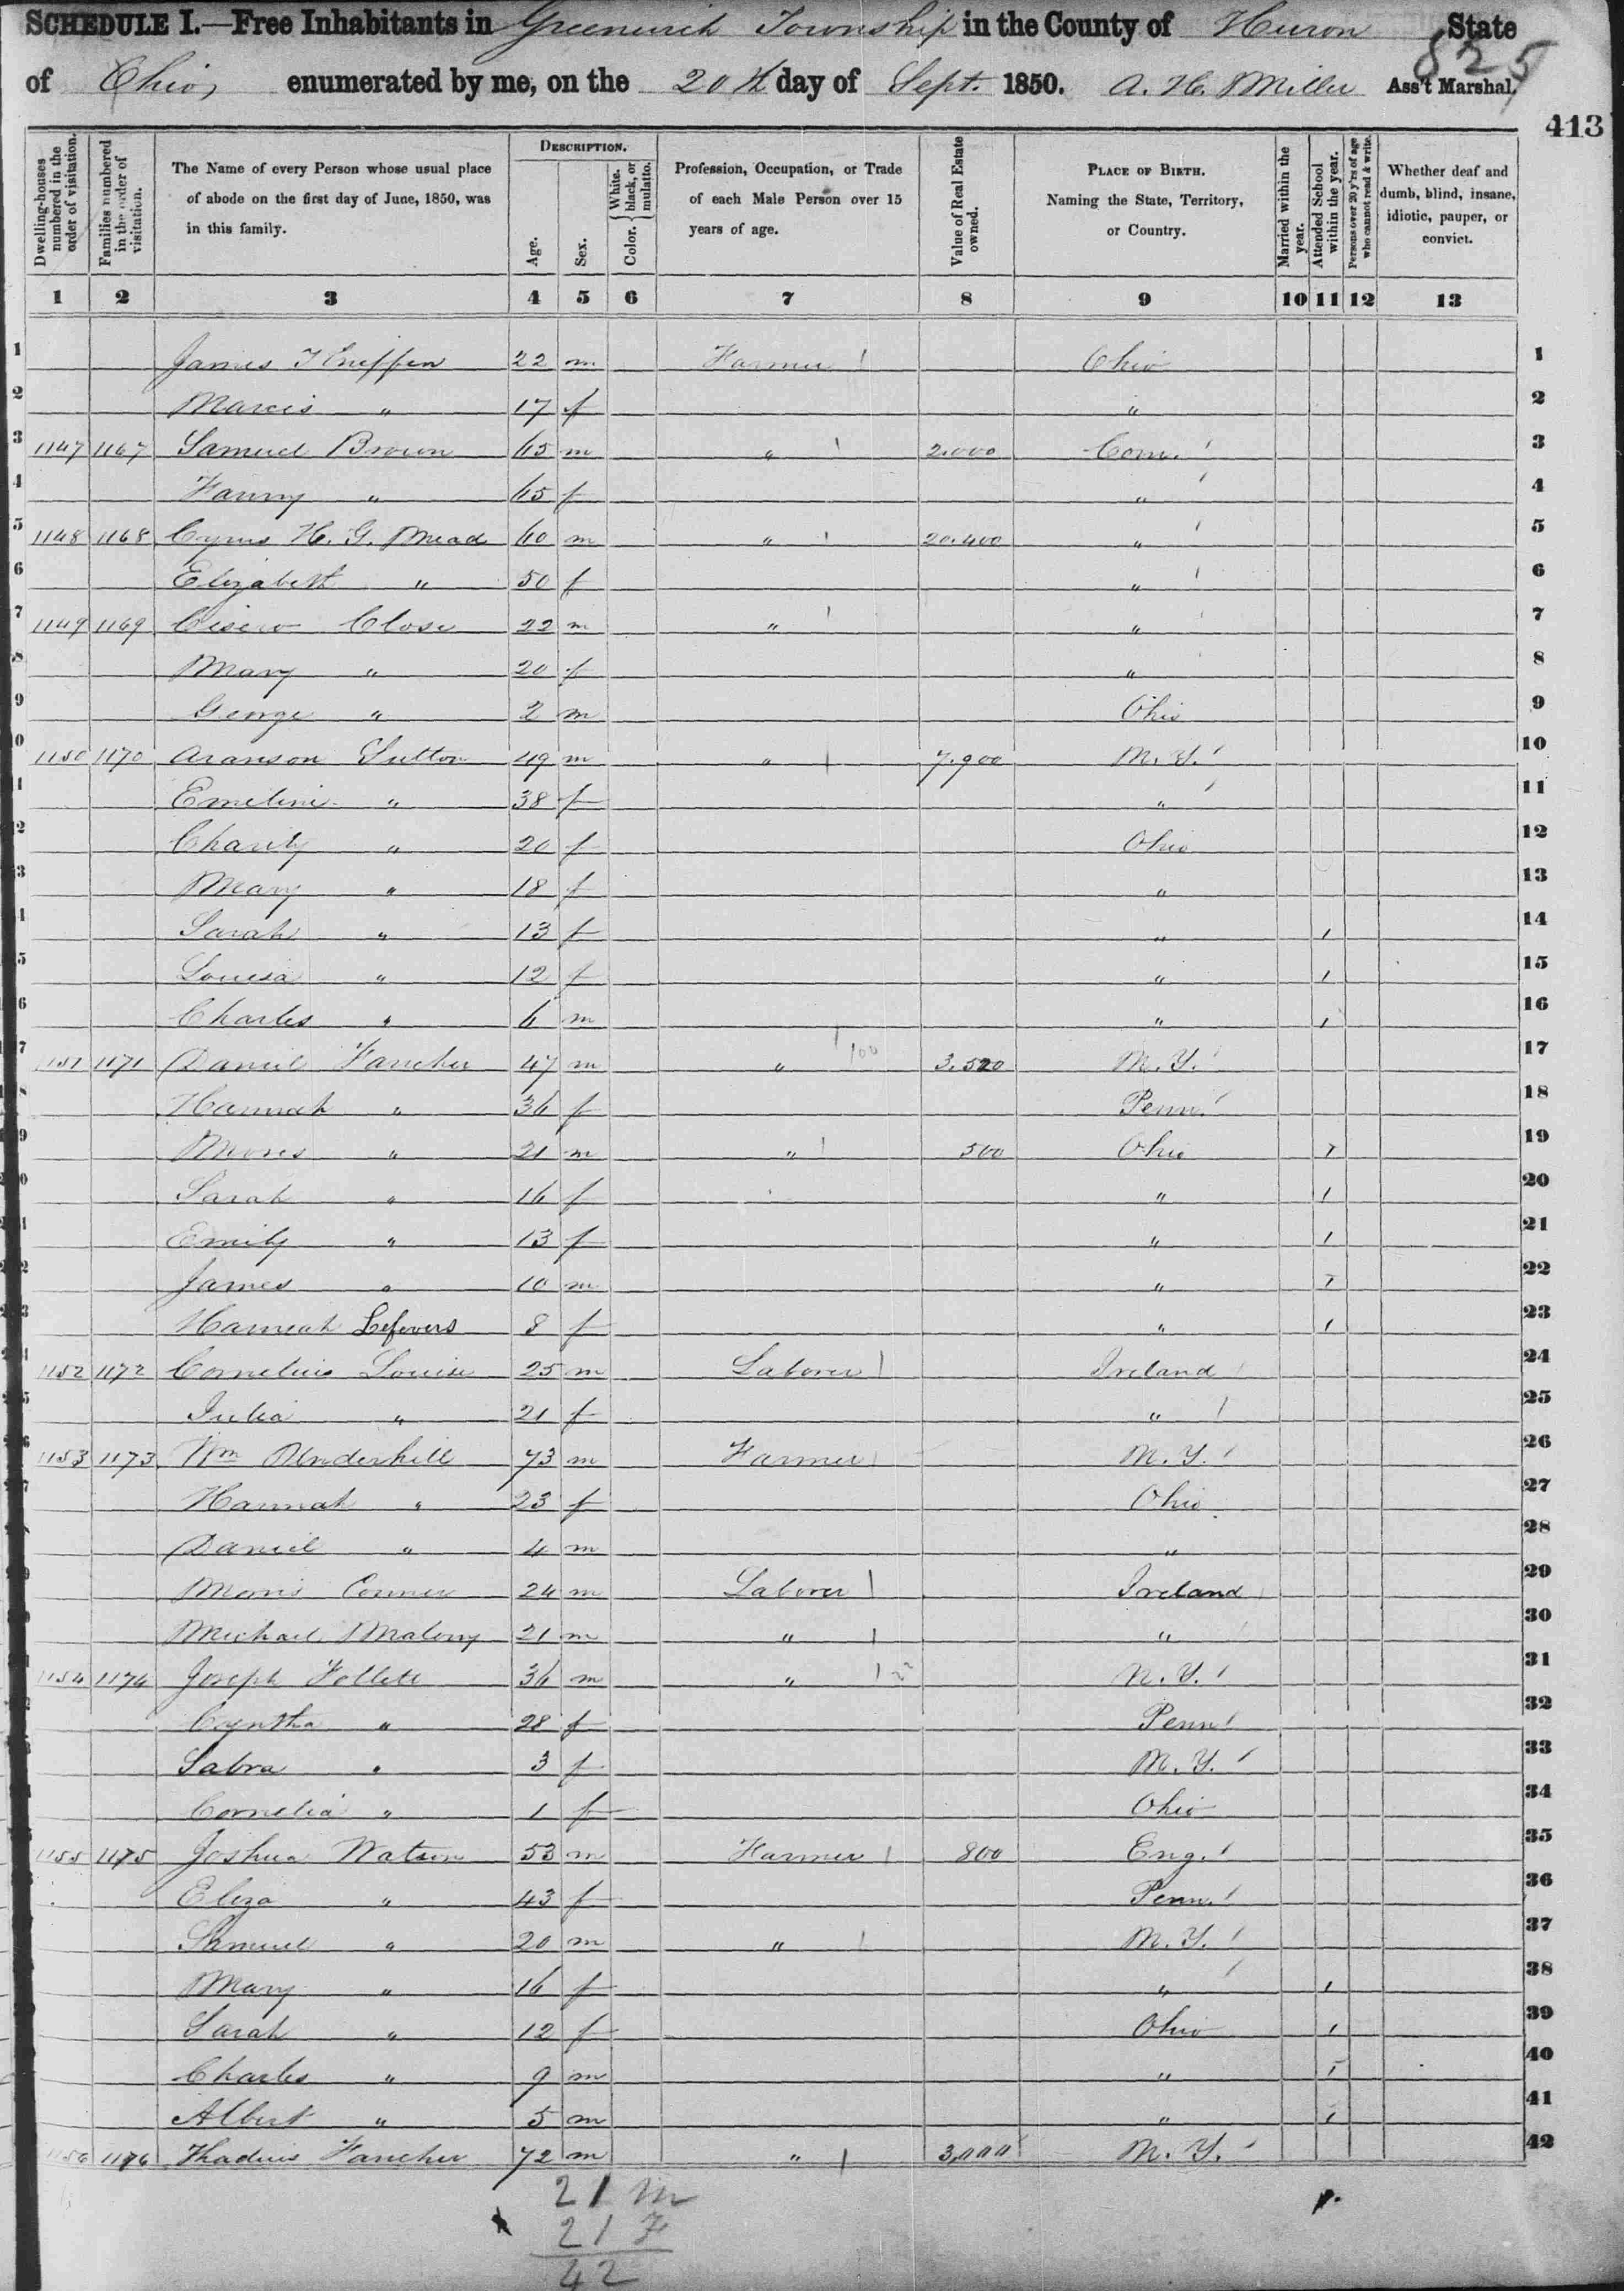 SCHEDULE I.—Free Inhabitants in Greenwich Township in the County of Huron State
of Ohio, enumerated by me, on the 20th day of Sept. 1850. A. H. Miller Ass't Marshal,
825
413
Dwelling-houses numbered in the order of visitation. Families numbered in the order of visitation. The Name of every Person whose usual place of abode on the first day of June, 1850, was in this family. DESCRIPTION. Age. Sex. Color. { White, black, or mulatto. Profession, Occupation, or Trade of each Male Person over 15 years of age. Value of Real Estate owned. PLACE OF BIRTH. Naming the State, Territory, or Country. Married within the year. Attended School within the year. Persons over 20 y'rs of age who cannot read & write. Whether deaf and dumb, blind, insane, idiotic, pauper, or convict.
1 2 3 4 5 6 7 8 9 10 11 12 13
1 James 22 m Farmer / Ohio 1
2 " 17 f " 2
3 1147 1167 Samuel Brown 65 m " / 2.000 Conn. / 3
4 Fanny " 65 f " / 4
5 1148 1168 Cyrus H. G. Mead 60 m " / 20.400 " / 5
6 Elizabeth " 50 f " / 6
7 1149 1169 Cisero Close 22 m " / " / 7
8 Mary " 20 f " / 8
9 George " 2 m Ohio 9
10 1150 1170 Aranson Sutton 49 m " / 7.900 N. Y. / 10
11 Emeline " 38 f " / 11
12 Charity " 20 f Ohio 12
13 Mary " 18 f " 13
14 Sarah " 13 f " / 14
15 Louisa " 12 f " / 15
16 Charles " 6 m " / 16
17 1151 1171 Daniel Fancher 47 m " / 100 3.520 N. Y. / 17
18 Hannah " 36 f Penn. / 18
19 " 21 m " / 500 Ohio / 19
20 Sarah " 16 f " / 20
21 Emily " 13 f " / 21
22 James " 10 m " / 22
23 Hannah Lefevers 8 f " / 23
24 1152 1172 Cornelius 25 m Laborer / Ireland / 24
25 Julia " 21 f " / 25
26 1153 1173 Wm Underhill 73 m Farmer / N. Y. / 26
27 Hannah " 23 f Ohio 27
28 Daniel " 4 m " 28
29 Morris Conner 24 m Laborer / Ireland / 29
30 Michael Malony 21 m " / " / 30
31 1154 1174 Joseph Follett 36 m " / N. Y. / 31
32 Cyntha " 28 f Penn / 32
33 Sabra " 3 f N. Y. / 33
34 Cornelia " 1 f Ohio 34
35 1155 1175 Joshua Watson 53 m Farmer / 800 Eng. / 35
36 Eliza " 43 f Penn. / 36
37 Samuel " 20 m " / N. Y. / 37
38 Mary " 16 f " / / 38
39 Sarah " 12 f Ohio / 39
40 Charles " 9 m " / 40
41 Albert " 5 m " / 41
42 1156 1176 Thadius Fancher 72 m " / 3,000 N. Y. / 42
21 M
21 F
42